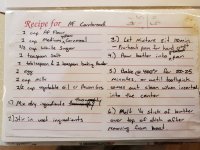 Recipe for AF Cornbread
1 cup AF Flour
1 cup Medium Cornmeal
1/2 cup White Sugar
1 teaspoon Salt
2 teaspoon baking powder
1 egg
1 cup milk
1/3 cup vegetable oil
1) Mix dry ingredients
2) Stir in wet ingredients
3.) Let mixture sit 10min
Preheat pan for
4.) Pour batter into pan
5.) Bake @ 400°F for 20-25
minutes, or until toothpick
comes out clean when inserted
into the center
6.) Melt 1/2 stick of butter
over top of dish after
removing from heat